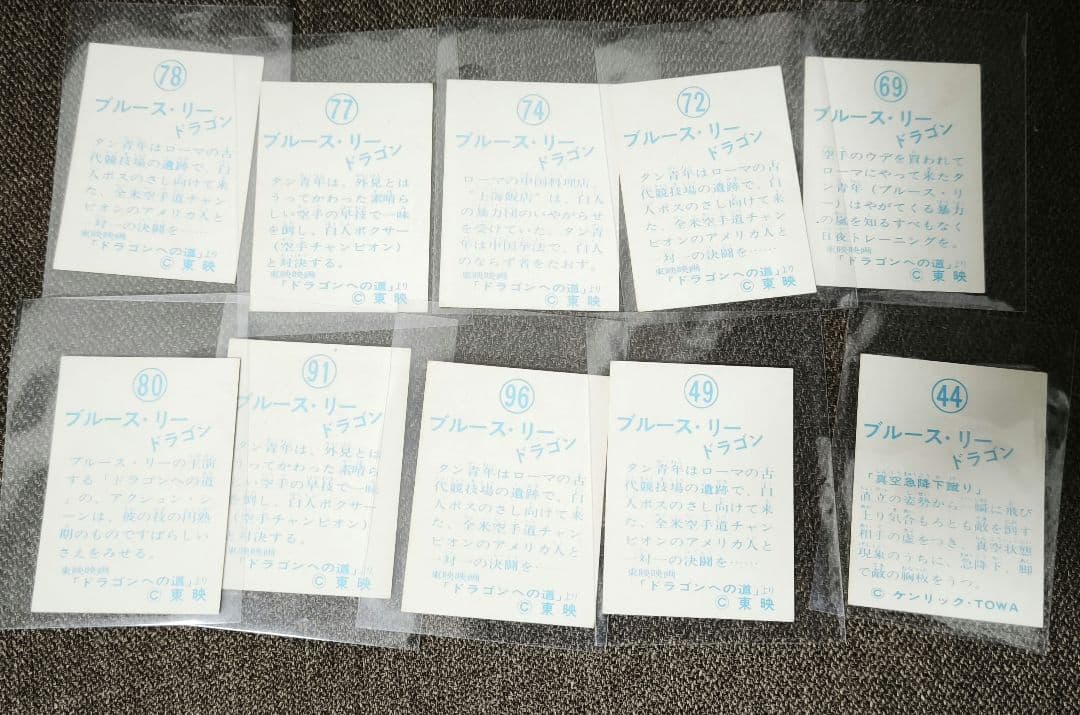 78
ブルース・リー
ドラゴン
タン青年はローマの古
代競技場の遺跡で、白
人ボスのさし向けて来
た、全米空手道チャン
ピオンのアメリカ人と
一対一の決闘を……
東映映画
「ドラゴンへの道」より
© 東映
77
ブルース・リー
ドラゴン
タン青年は、外見とは
うってかわった素晴ら
しい空手の早技で一味
を倒し、白人ボクサー
(空手チャンピオン)
と対決する。
東映映画
「ドラゴンへの道」より
© 東映
74
ブルース・リー
ドラゴン
ローマの中国料理店、
"上海飯店"は、白人
の暴力団のいやがらせ
を受けていた。タン青
年は中国拳法で、白人
のならず者をたおす。
東映映画
「ドラゴンへの道」より
© 東映
72
ブルース・リー
ドラゴン
タン青年はローマの古
代競技場の遺跡で、白
人ボスのさし向けて来
た、全米空手道チャン
ピオンのアメリカ人と
一対一の決闘を……
東映映画
「ドラゴンへの道」より
© 東映
69
ブルース・リー
ドラゴン
空手のウデを買われて
ローマにやって来たタ
ン青年(ブルース・リ
ー)はやがてくる暴力
の嵐を知るすべもなく
日夜トレーニングを。
東映映画
「ドラゴンへの道」より
© 東映
80
ブルース・リー
ドラゴン
ブルース・リーの主演
する「ドラゴンへの道
」の、アクション・シ
ーンは、彼の技の円熟
期のものですばらしい
さえをみせる。
東映映画
「ドラゴンへの道」より
© 東映
91
ブルース・リー
ドラゴン
タン青年は、外見とは
うってかわった素晴ら
しい空手の早技で一味
を倒し、白人ボクサー
(空手チャンピオン)
と対決する。
東映映画
「ドラゴンへの道」より
© 東映
96
ブルース・リー
ドラゴン
タン青年はローマの古
代競技場の遺跡で、白
人ボスのさし向けて来
た、全米空手道チャン
ピオンのアメリカ人と
一対一の決闘を……
東映映画
「ドラゴンへの道」より
© 東映
49
ブルース・リー
ドラゴン
タン青年はローマの古
代競技場の遺跡で、白
人ボスのさし向けて来
た、全米空手道チャン
ピオンのアメリカ人と
一対一の決闘を……
東映映画
「ドラゴンへの道」より
© 東映
44
ブルース・リー
ドラゴン
「真空急降下蹴り」
直立の姿勢から一瞬に飛び
上り気合もろとも敵を倒す
相手の虚をつき、真空状態
現象のうちに、急降下、脚
で敵の胸板をうつ。
© ケンリック・TOWA